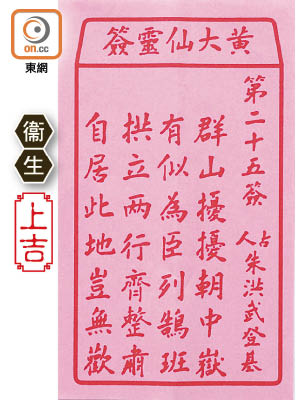 on.cc
東網
衞生
上吉
黃大仙靈簽
第二十五簽
占人朱洪武登基
群山擾擾朝中嶽
有似為臣列鵷班
拱立两行齊整肅
自居此地豈無歡